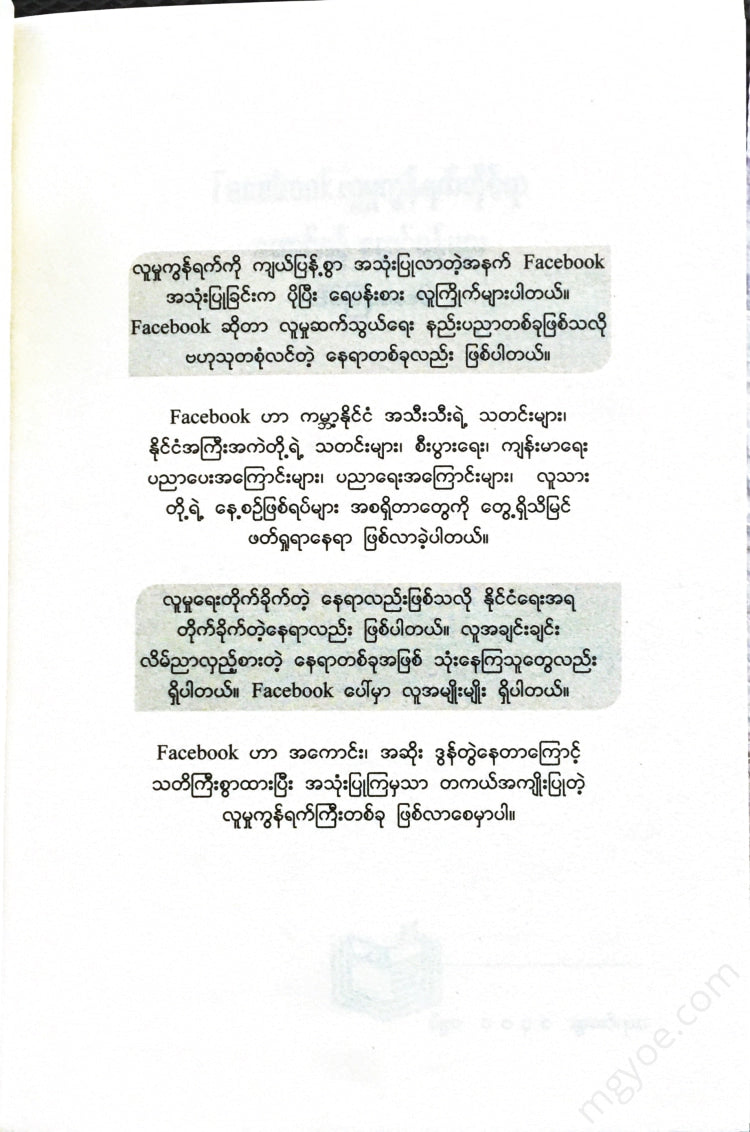 လူမှုကွန်ရက်ကို ကျယ်ပြန့်စွာ အသုံးပြုလာတဲ့အနက် Facebook
အသုံးပြုခြင်းက ပိုပြီး ရေပန်းစား လူကြိုက်များပါတယ်။
Facebook ဆိုတာ လူမှုဆက်သွယ်ရေး နည်းပညာတစ်ခုဖြစ်သလို
ဗဟုသုတစုံလင်တဲ့ နေရာတစ်ခုလည်း ဖြစ်ပါတယ်။
Facebook ဟာ ကမ္ဘာ့နိုင်ငံ အသီးသီးရဲ့ သတင်းများ၊
နိုင်ငံအကြီးအကဲတို့ရဲ့ သတင်းများ၊ စီးပွားရေး၊ ကျန်းမာရေး
ပညာပေးအကြောင်းများ၊ ပညာရေးအကြောင်းများ၊ လူသား
တို့ရဲ့ နေ့စဉ်ဖြစ်ရပ်များ အစရှိတာတွေကို တွေ့ရှိသိမြင်
ဖတ်ရှုရာနေရာ ဖြစ်လာခဲ့ပါတယ်။
လူမှုရေးတိုက်ခိုက်တဲ့ နေရာလည်းဖြစ်သလို နိုင်ငံရေးအရ
တိုက်ခိုက်တဲ့နေရာလည်း ဖြစ်ပါတယ်။ လူအချင်းချင်း
လိမ်ညာလှည့်စားတဲ့ နေရာတစ်ခုအဖြစ် သုံးနေကြသူတွေလည်း
ရှိပါတယ်။ Facebook ပေါ်မှာ လူအမျိုးမျိုး ရှိပါတယ်။
Facebook ဟာ အကောင်း၊ အဆိုး ဒွန်တွဲနေတာကြောင့်
သတိကြီးစွာထားပြီး အသုံးပြုကြမှသာ တကယ်အကျိုးပြုတဲ့
လူမှုကွန်ရက်ကြီးတစ်ခု ဖြစ်လာစေမှာပါ။
mgyoe.com